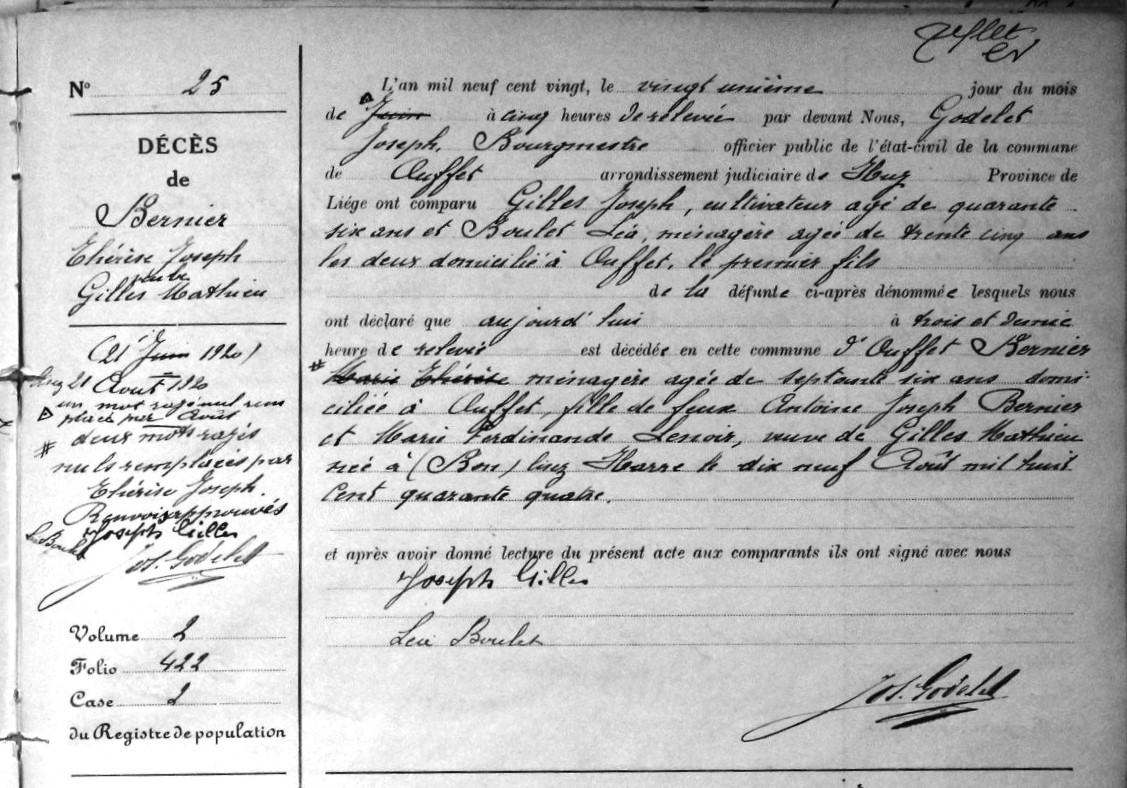 N° 25
DÉCÈS
de
Bernier
Thérèse Joseph
veuve
Gilles Mathieu
(21 Juin 1920)
Lisez 21 Août 1920
un mot rayé nul rem
placé par Août
deux mots rayés
nuls remplacés par
Thérèse Joseph.
Renvois approuvés
Joseph Gilles
Lea Boulet
Jos. Godelet
Volume 2
Folio 422
Case 2
du Registre de population
L'an mil neuf cent vingt, le vingt unième jour du mois
de Juin à cinq heures de relevée par devant Nous, Godelet
Joseph, Bourgmestre officier public de l'état-civil de la commune
de Ouffet arrondissement judiciaire de Huy Province de
Liége ont comparu Gilles Joseph, cultivateur agé de quarante
six ans et Boulet Léa, ménagère agée de trente cinq ans
les deux domicilié à Ouffet, le premier fils
de la défunte ci-après dénommée lesquels nous
ont déclaré que aujourd'hui à trois et demie
heure de relevée est décédée en cette commune d'Ouffet Bernier
# Marie Thérèse ménagère agée de septante six ans domi-
ciliée à Ouffet, fille de feux Antoine Joseph Bernier
et Marie Ferdinande Lenoir, veuve de Gilles Mathieu
née à (Bon) lisez Harre le dix neuf Août mil huit
cent quarante quatre.
et après avoir donné lecture du présent acte aux comparants ils ont signé avec nous
Joseph Gilles
Lea Boulet
Jos. Godelet